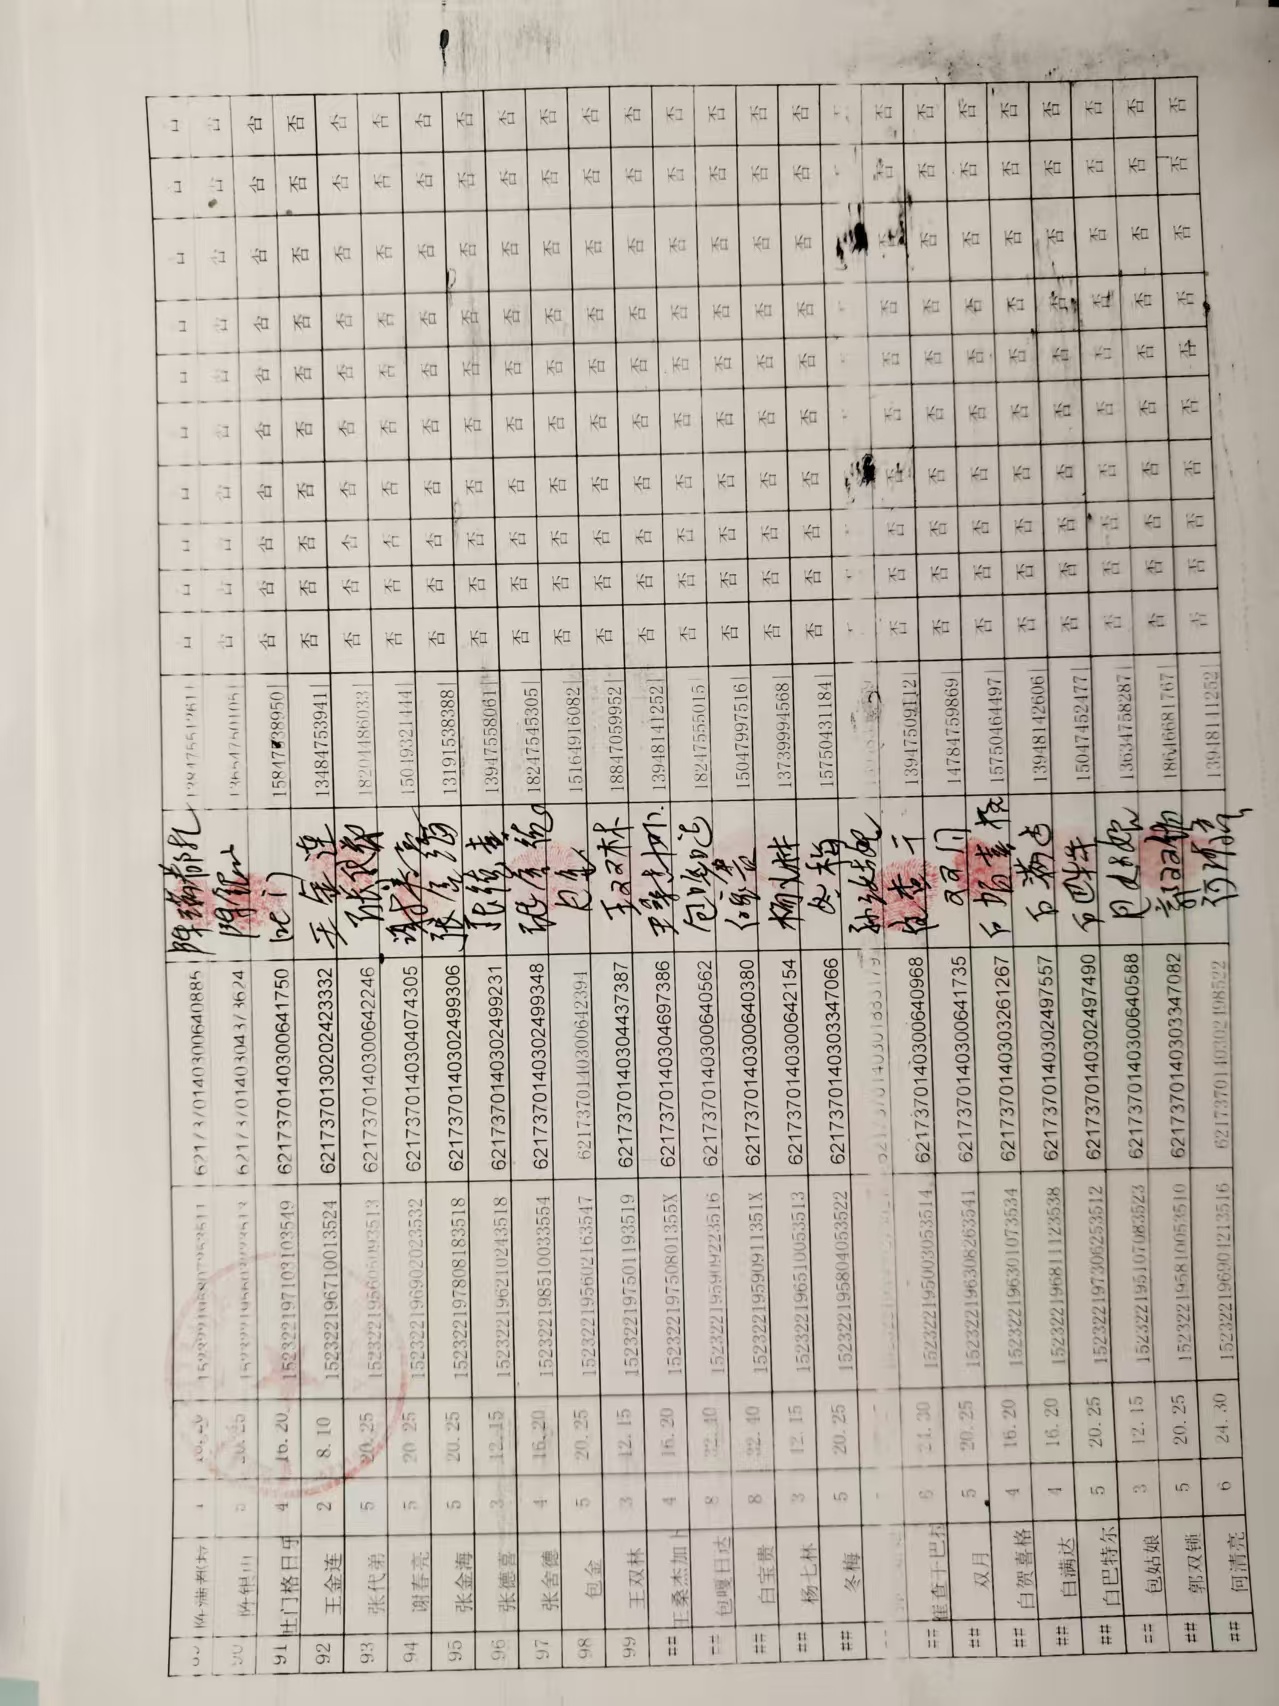 91 吐门格日乐 4 16.20 152322197103103549 6217370140300641750 否 否 否 否 否 否 否 否 否 否
92 王金连 2 8.10 152322196710013524 6217370130202423332 王金连 13484753941 否 否 否 否 否 否 否 否 否 否
93 张代弟 5 20.25 6217370140300642246 18204486033 否 否 否 否 否 否 否 否 否 否
94 谢春亮 5 20.25 152322196902023532 6217370140304074305 15049321444 否 否 否 否 否 否 否 否 否 否
95 张金海 5 20.25 152322197808183518 6217370140302499306 张金海 13191538388 否 否 否 否 否 否 否 否 否 否
96 张德喜 3 12.15 152322196210243518 6217370140302499231 张德喜 13947558061 否 否 否 否 否 否 否 否 否 否
97 张舍德 4 16.20 152322198510033554 6217370140302499348 18247545305 否 否 否 否 否 否 否 否 否 否
98 包金 5 20.25 152322195602163547 6217370140300642394 15164916082 否 否 否 否 否 否 否 否 否 否
99 王双林 3 12.15 152322197501193519 6217370140304437387 王双林 18847059952 否 否 否 否 否 否 否 否 否 否
## 王桑杰加卜 4 16.20 15232219750801355X 6217370140304697386 13948141252 否 否 否 否 否 否 否 否 否 否
## 包嘎日达 8 32.40 152322195909223516 6217370140300640562 包嘎日达 18247555015 否 否 否 否 否 否 否 否 否 否
## 白宝贵 8 32.40 15232219590911351X 6217370140300640380 白宝贵 15047997516 否 否 否 否 否 否 否 否 否 否
## 杨七林 3 12.15 152322196510053513 6217370140300642154 杨七林 13739994568 否 否 否 否 否 否 否 否 否 否
## 冬梅 5 20.25 152322195804053522 6217370140303347066 冬梅 15750431184
## 6 24.30 152322195003053514 6217370140300640968 13947509112 否 否 否 否 否 否 否 否 否 否
## 双月 5 20.25 152322196308263541 6217370140300641735 双月 14784759869 否 否 否 否 否 否 否 否 否 否
## 白贺喜格 4 16.20 152322196301073534 6217370140303261267 15750464497 否 否 否 否 否 否 否 否 否 否
## 白满达 4 16.20 152322196811123538 6217370140302497557 白满达 13948142606 否 否 否 否 否 否 否 否 否 否
## 白巴特尔 5 20.25 152322197306253512 6217370140302497490 15047452477 否 否 否 否 否 否 否 否 否 否
## 包姑娘 3 12.15 152322195107083523 6217370140300640588 包姑娘 13634758287 否 否 否 否 否 否 否 否 否 否
## 郭双锁 5 20.25 152322195810053510 6217370140303347082 郭双锁 18646681767 否 否 否 否 否 否 否 否 否 否
## 何清亮 6 24.30 152322196901213516 6217370140302498522 何清亮 13948111252 否 否 否 否 否 否 否 否 否 否